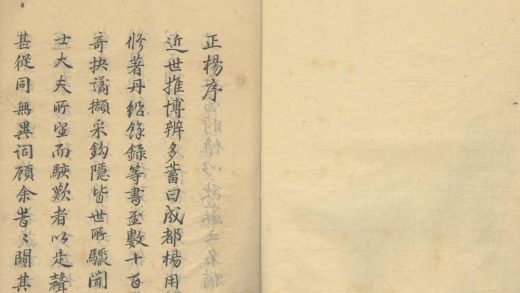 正楊序
近世推博辨多蓄曰成都楊用
修著丹鉛錄等書盈數十百
奇抉譎擷采鈎隱皆世所驟聞
士大夫所宣而駭歎者以是聲
甚從同無異詞顧余昔〻闚其